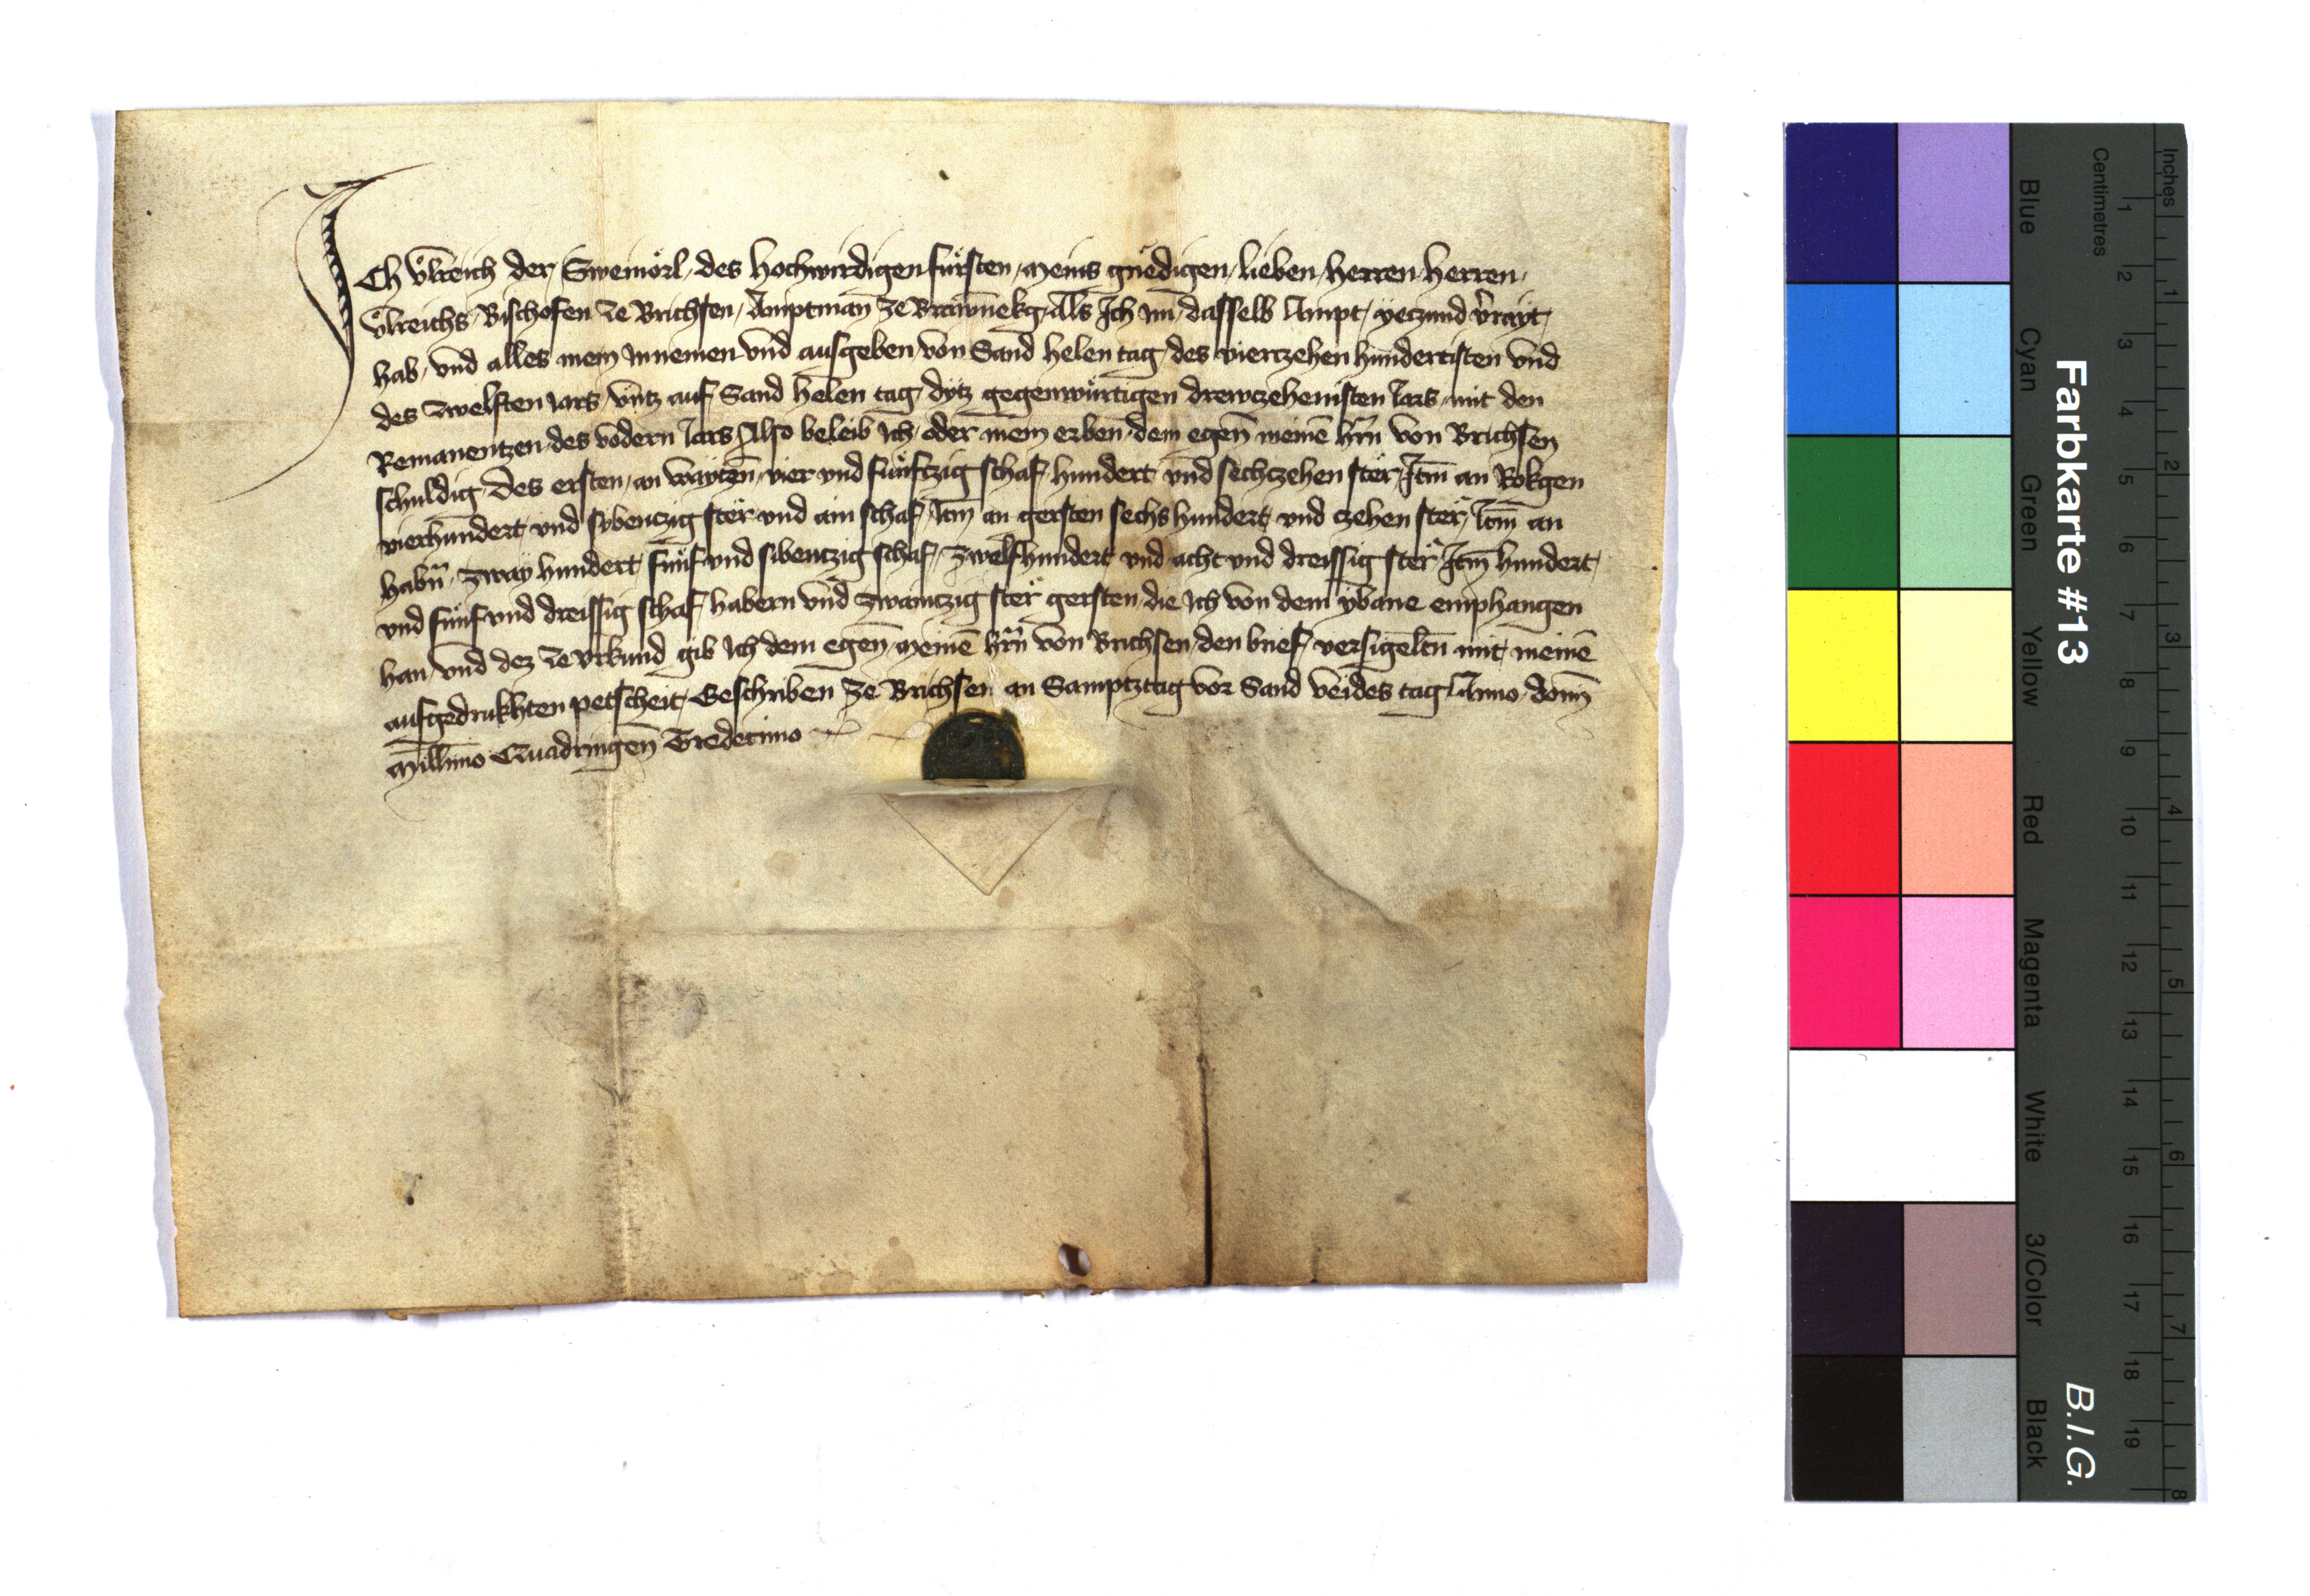 ICh Ůlreich der Swemörl des hochwirdigen fürsten meins gnedigen lieben herren herren
Ůlreichs Bischofen ze Brichsen Amptman̄ ze Brawnekg Als Ich im dasselb Ampt yeczund v̄rayt
hab vnd alles mein Innemen vnd ausgeben von Sand helen tag des vierczehen hundertisten vnd
des zwelften Jars vntz auf Sand helen tag dytz gegenwürtigen drewczehenisten Jars mit den
Remanentzen des vodern Jars Also beleib Ich oder mein erben dem egen̄ meinē hr̄n von Brichsen
schuldig Des ersten an wayczen̄ vier vnd fünftzig schaf hundert vnd sechczehen ster Itm̄ an Rokgen
vierhundert vnd sybenczig ster vnd ain schaf Itm̄ an gersten sechs hundert vnd czehen ster Itm̄ an
habn̄ zway hundert fünf vnd sibentzig schaf zwelfhundert vnd acht vnd dreissig ster Itm̄ hundert
vnd fünf vnd dreissig schaf habern vnd zwantzig ster gersten die Ich von dem ybane emphangen
han vnd dez ze vrkund gib Ich dem egen̄ meinē hr̄n von Brichsen den brief versigeltn̄ mit meinē
aufgedrukhten petscheit Geschriben ze Brichsen an Samptztag vor Sand veides tag Anno domī
Millīmo Quadringen̄ Tredecimo
Farbkarte #13
B.I.G.
Blue Cyan Green Yellow Red Magenta White 3/Color Black
Centimetres
1 2 3 4 5 6 7 8 9 10 11 12 13 14 15 16 17 18 19
Inches
1 2 3 4 5 6 7 8